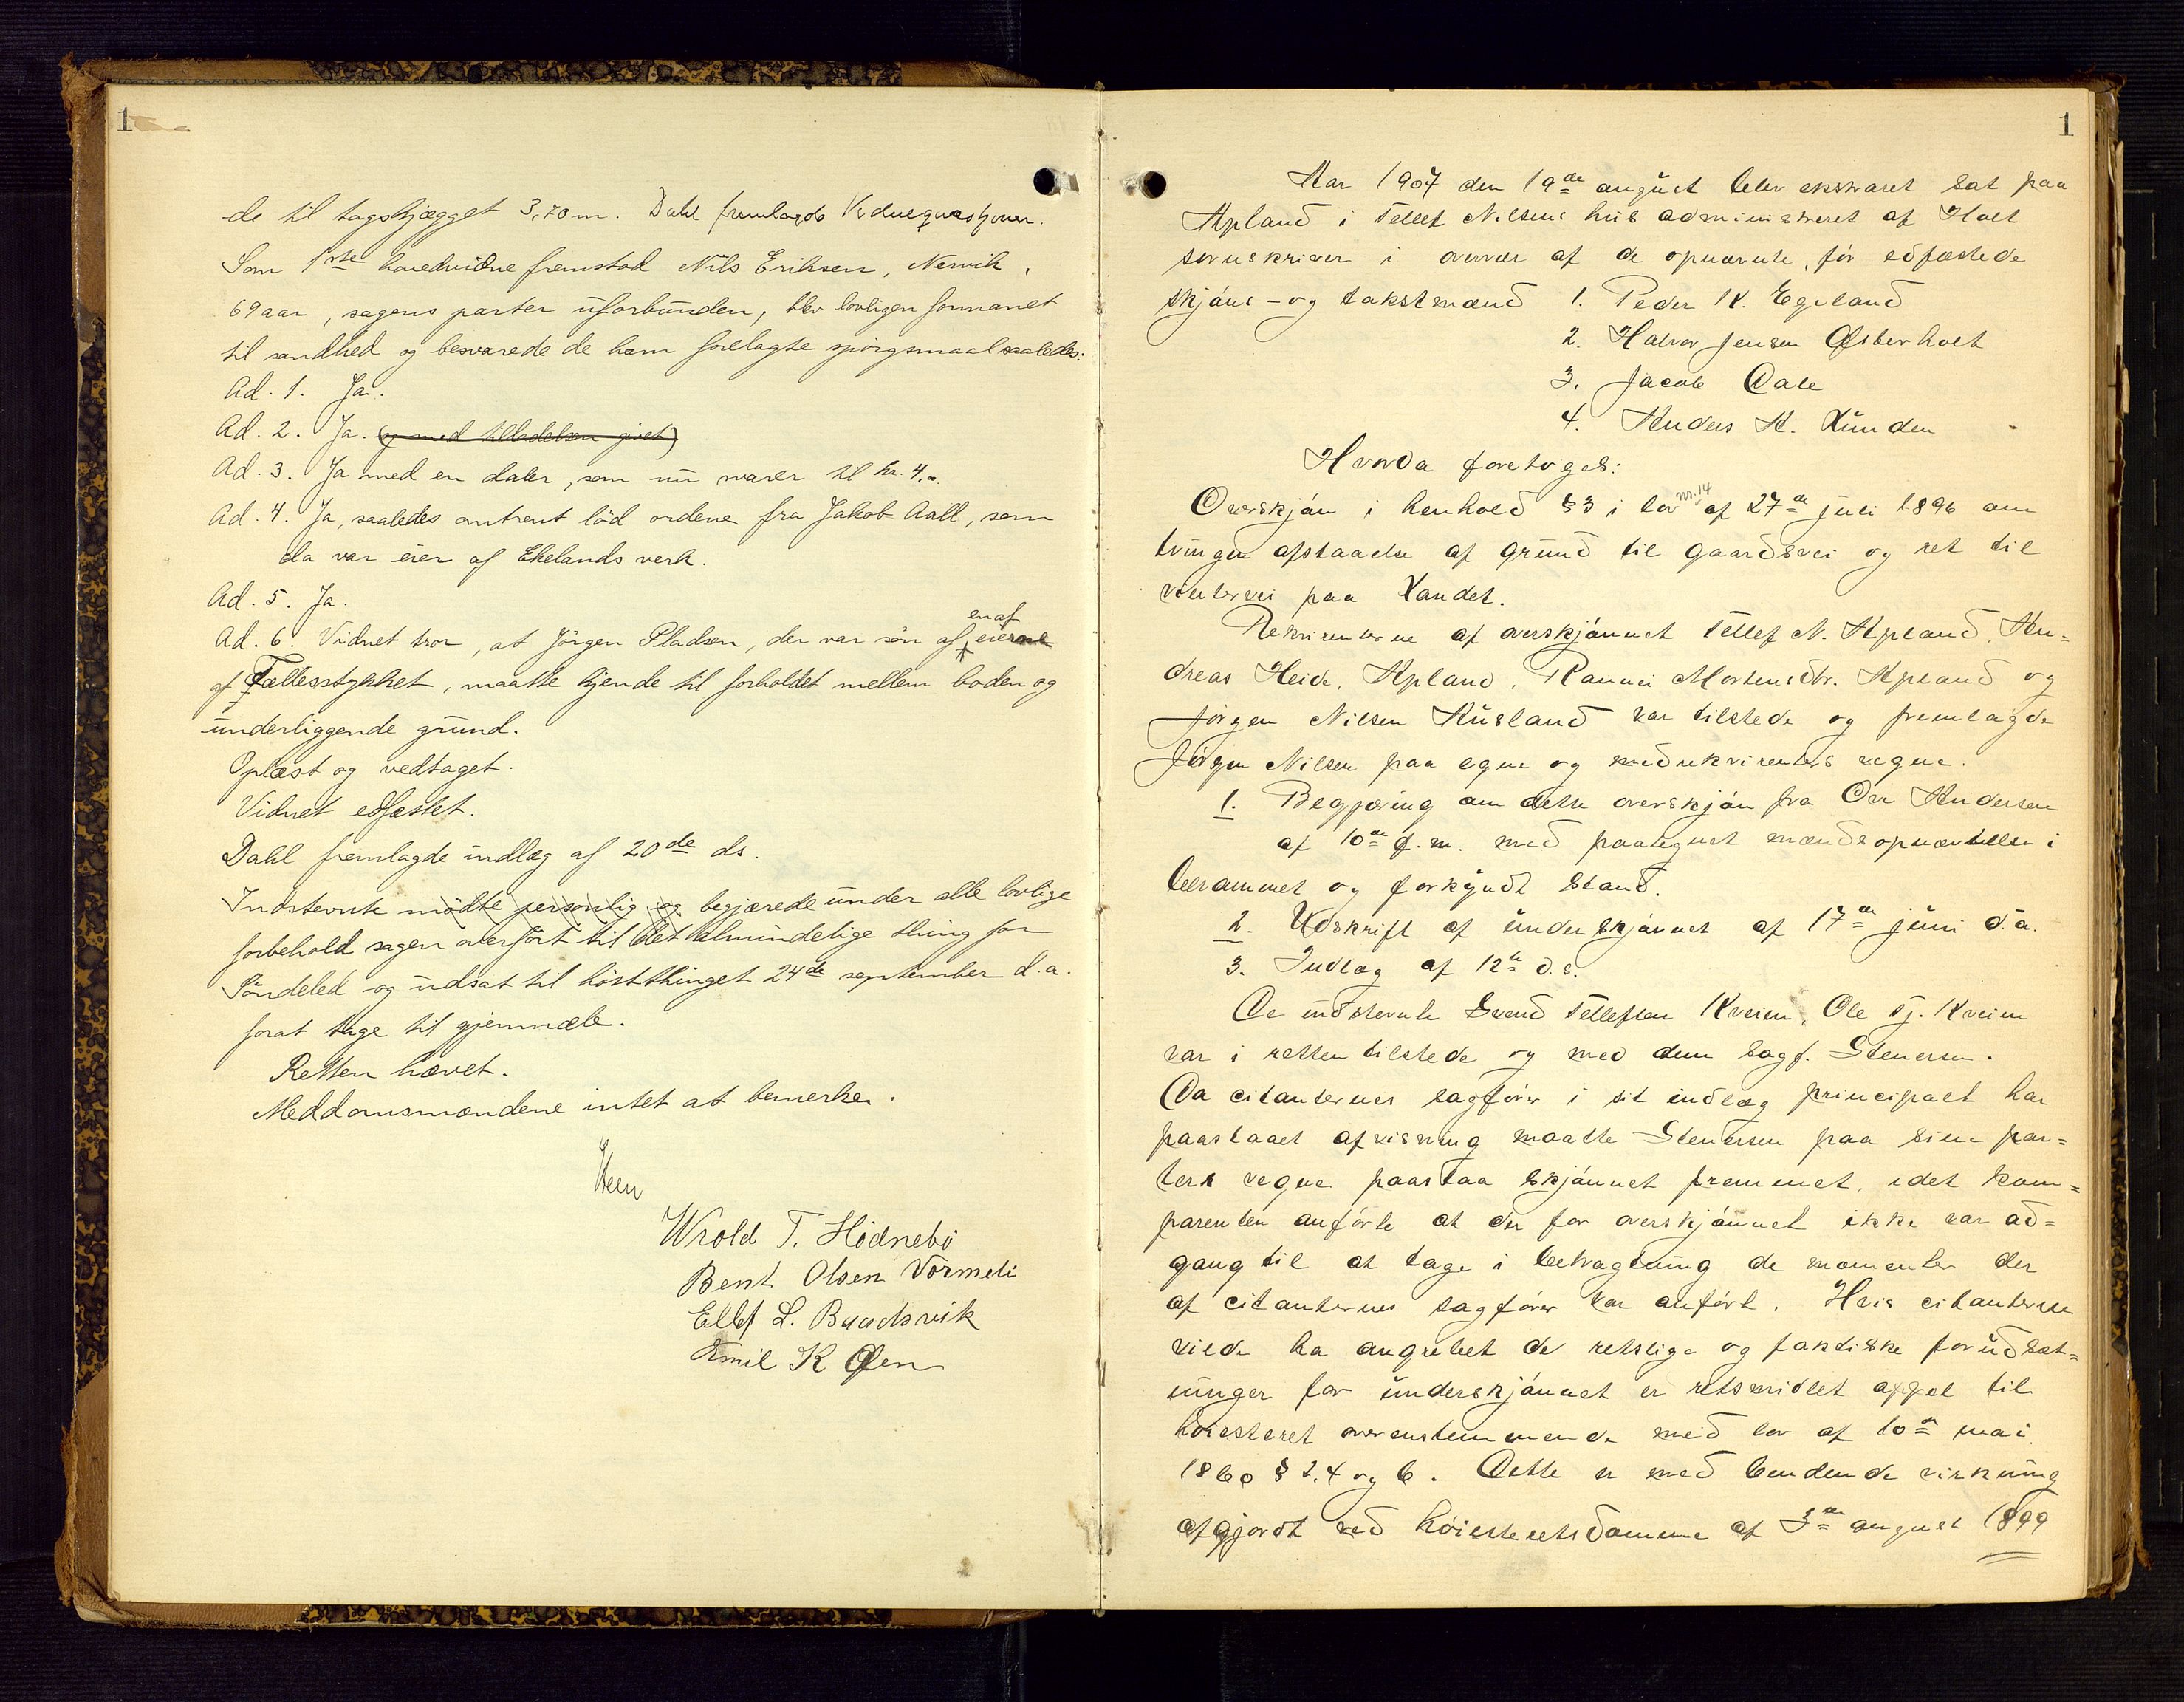 1
de til tagskjægget 3,70 m. Dahl fremlagde
Som 1ste hovedvidne fremstod Nils Eriksen, Nesvik,
69 aar, sagens parter uforbunden, blev lovligen formanet
til sandhed og besvarede de ham forelagte spørgsmaal saaledes:
Ad. 1. Ja.
Ad. 2. Ja. (og med tilladelsen givet)
Ad. 3. Ja med en daler, som nu svarer til kr. 4.
Ad. 4. Ja, saaledes omtrent lød ordene fra Jakob Aall, som
da var eier af Ekelands verk.
Ad. 5. Ja.
en af
Ad. 6. Vidnet tror, at Jörgen Pladsen, der var sön af eierne
af Fællesstykket, maatte kjende til forholdet mellem boden og
underliggende grund.
Oplæst og vedtaget.
Vidnet edfæstet.
Dahl fremlagde indlæg af 20de ds.
Indstevnte mödte personlig og begjærede under alle lovlige
forbehold sagen overfört til det almindelige thing for
Söndeled og udsat til höstthinget 24de september d.a.
forat tage til gjenmæle.
Retten hævet.
Meddomsmændene intet at bemerke.
Wrold T. Hödnebö
Bent Olsen Vormeli
Ellef L. Baadsvik
Emil K Øen
1
Aar 1907 den 19de august blev ekstraret sat paa
Apland i Tellef Nilsens hus administreret af Holt
sorenskriver i overvær af de opnævnte, för edfæstede
skjöns- og takstmænd 1. Peder K. Egeland
2. Halvor Jensen Østerholt
3. Jacob Dale
4. Anders A. Lunden
Hvorda foretoges:
nr. 14
Overskjön i henhold § 3 i lov af 27de juli 1896 om
tvungen afstaaelse af grund til gaardsvei og ret til
vintervei paa Landet.
Rekvirenterne af overskjönnet Tellef N. Apland, An=
dreas Heide, Apland, Rannei Mortensdtr. Apland og
Jörgen Nilsen Aasland var tilstede og fremlagde
Jörgen Nilsen paa egne og medrekvirenters vegne.
1. Begjæring om dette overskjön fra Ole Andersen
af 10de f.m. med paategnet mændsopnævnelse i
berammet og forkyndt stand.
2. Udskrift af underskjönnet af 17de juni d.a.
3. Indlæg af 12te d.s.
De indstevnte Svend Tellefsen Kveim, Ole Tj. Kveim
var i retten tilstede og med dem sagf. Stenersen.
Da citanternes sagförer i sit indlæg principalt har
paastaaet afvisning maatte Stenersen paa sine par=
ters vegne paastaa skjönnet fremmet, idet kom=
parenten anförte at der for overskjönnet ikke var ad=
gang til at tage i betragtning de momenter der
af citanternes sagförer var anfört. Hvis citanterne
vilde ha angrebet de retslige og faktiske forudsæt=
ninger for underskjönnet er retsmidlet appel til
höiesteret overensstemmende med lov af 10de mai
1860 § 2, 4 og 6. Dette er med bindende virkning
afgjordt ved höiesteretsdomme af 3de august 1899